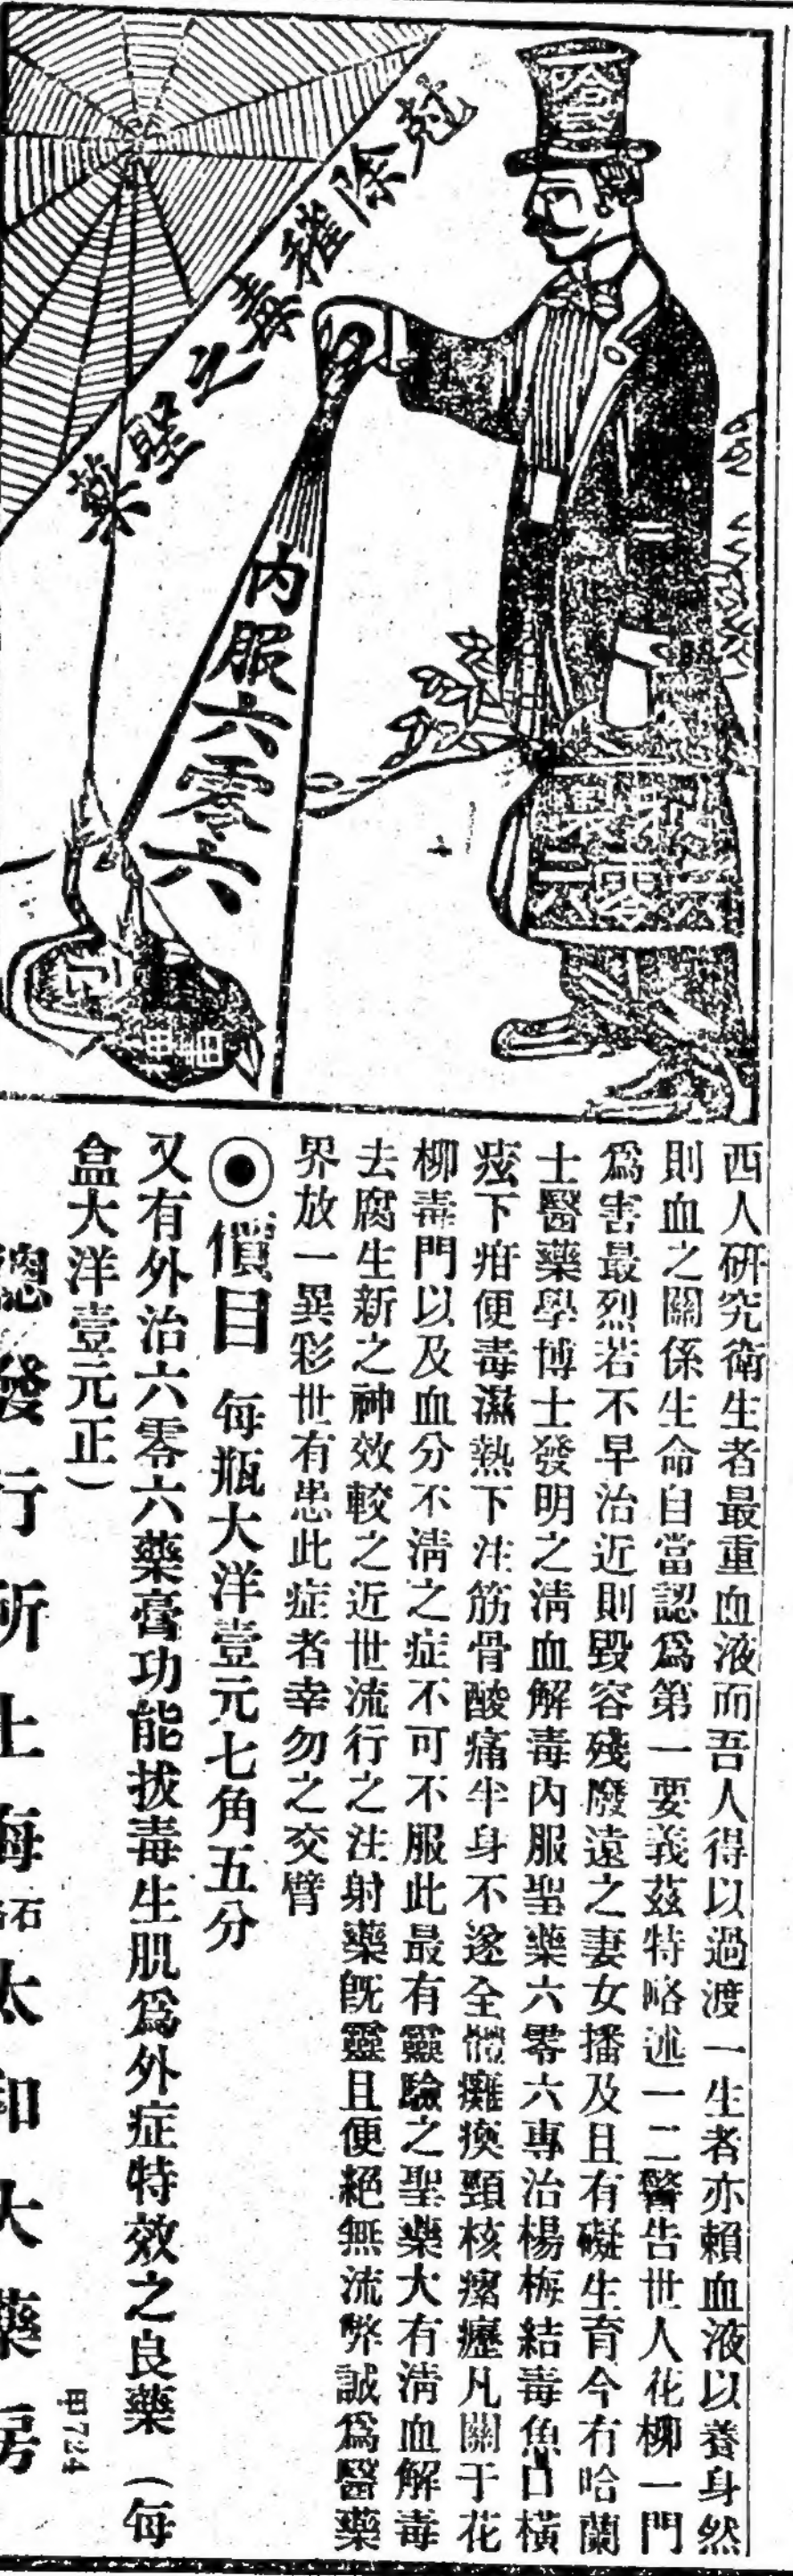 尅除種毒之聖藥
內服六零六
西人研究衛生者最重血液而吾人得以過渡一生者亦賴血液以養身然
則血之關係生命自當認爲第一要義茲特略述一二警告世人花柳一門
爲害最烈若不早治近則毀容殘廢遠之妻女播及且有礙生育今有哈蘭
士醫藥學博士發明之淸血解毒內服聖藥六零六專治楊梅結毒魚口橫
痃下疳便毒濕熱下注筋骨酸痛半身不遂全體癱瘓頸核瘰癧凡關于花
柳毒門以及血分不淸之症不可不服此最有靈驗之聖藥大有淸血解毒
去腐生新之神效較之近世流行之注射藥旣靈且便絕無流弊誠爲醫藥
界放一異彩世有患此症者幸勿之交臂
◉價目 每瓶大洋壹元七角五分
又有外治六零六藥膏功能拔毒生肌爲外症特效之良藥(每
盒大洋壹元正)
總發行所上海石路太和大藥房
甲724